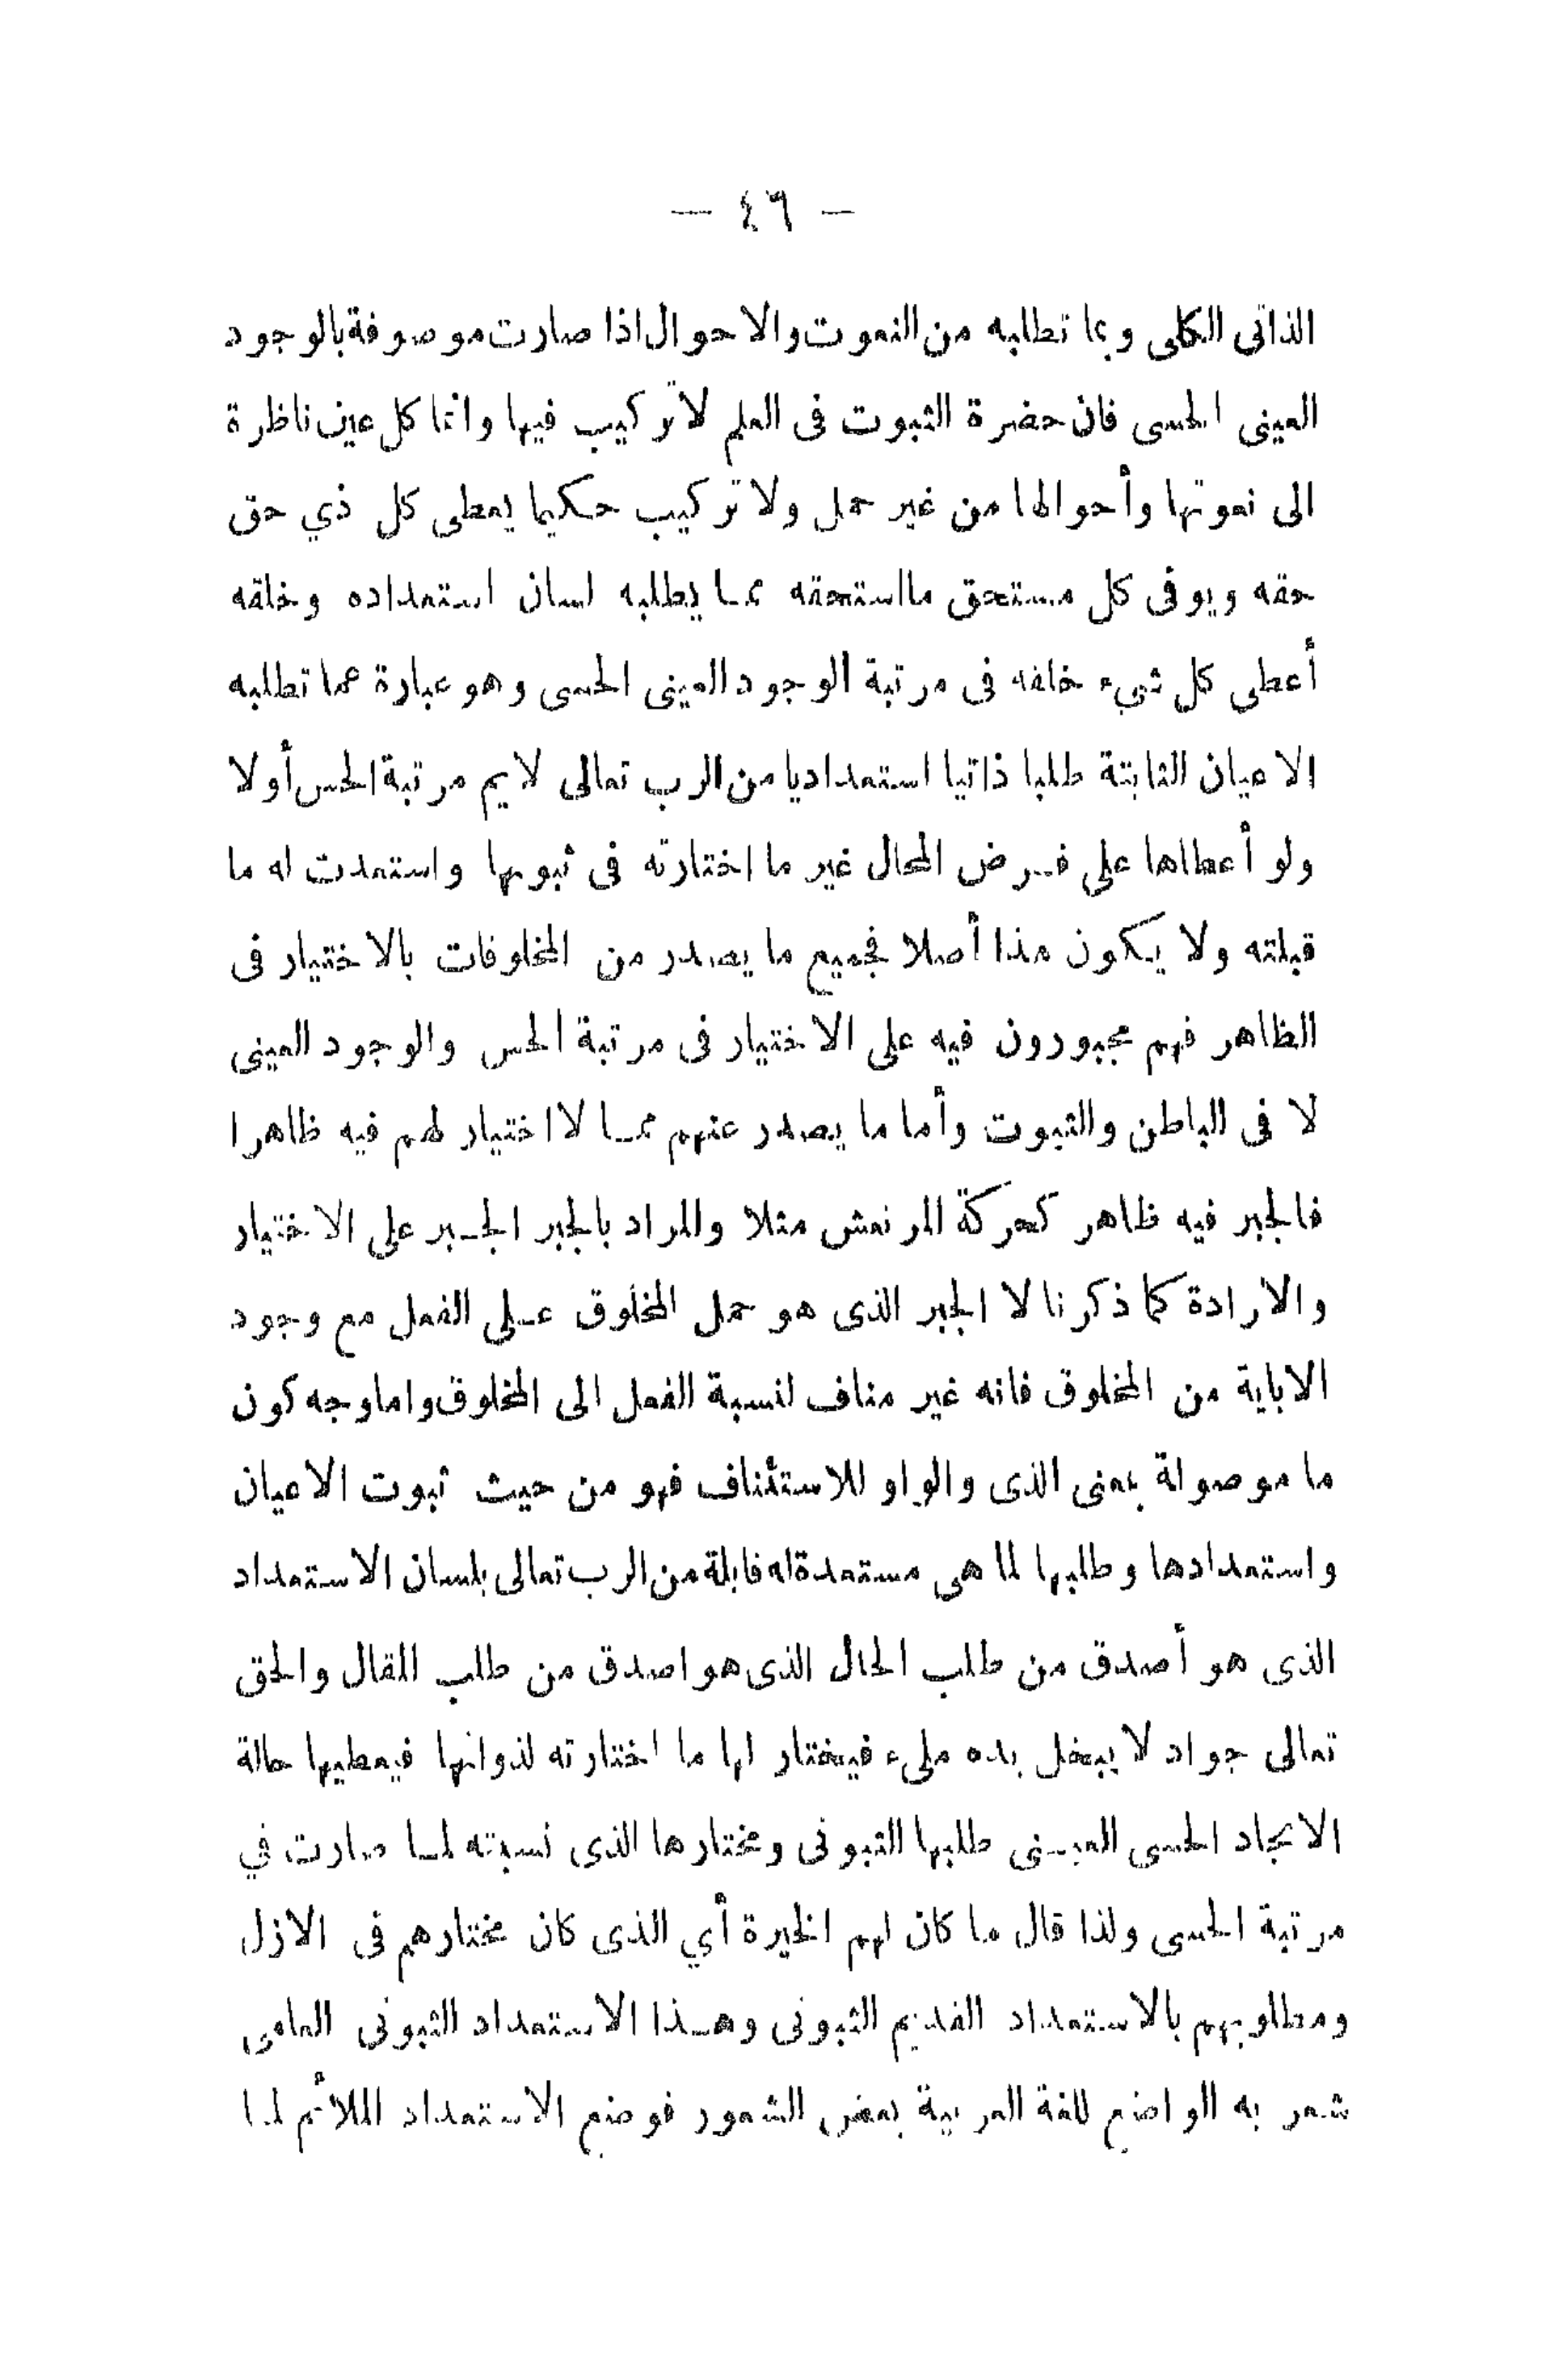 — ٤٦ —
الذاتى الكلى وبما تطلبه من النعوت والاحوال اذا صارت موصوفة بالوجود
العينى الحسى فان حضرة الثبوت فى العلم لا تركيب فيها وانما كل عين ناظرة
الى نعوتها وأحوالها من غير حمل ولا تركيب حكيما يعطى كل ذي حق
حقه ويوفى كل مستحق مااستحقه ممـا يطلبه لسان استعداده وخلقه
أعطى كل شىء خلقه فى مرتبة الوجود العينى الحسى وهو عبارة عما تطلبه
الاعيان الثابتة طلبا ذاتيا استعداديا من الرب تعالى لايم مرتبة الحس أولا
ولو أعطاها على فـرض المحال غير ما اختارته فى ثبوتها واستعدت له ما
قبلته ولا يكون هذا أصلا فجميع ما يصدر من المخلوقات بالاختيار فى
الظاهر فهم مجبورون فيه على الاختيار فى مرتبة الحس والوجود العينى
لا فى الباطن والثبوت وأما ما يصدر عنهم ممـا لا اختيار لهم فيه ظاهرا
فالجبر فيه ظاهر كحركة المرتعش مثلا والمراد بالجبر الجـبر على الاختيار
والارادة كما ذكرنا لا الجبر الذى هو حمل المخلوق عـلى الفعل مع وجود
الاباية من المخلوق فانه غير مناف لنسبة الفعل الى المخلوق واما وجه كون
ما موصولة بمعنى الذى والواو للاستئناف فهو من حيث ثبوت الاعيان
واستعدادها وطلبها لما هى مستعدة له قابلة من الرب تعالى بلسان الاستعداد
الذى هو أصدق من طلب الحال الذى هو اصدق من طلب المقال والحق
تعالى جواد لا يبخل يده ملىء فيختار لها ما اختارته لذواتها فيعطيها حالة
الايجاد الحسى العيـنى طلبها الثبوتى ومختارها الذى نسبته لمـا صارت في
مرتبة الحسى ولذا قال ما كان لهم الخيرة أي الذى كان مختارهم فى الازل
ومطلوبهم بالاستعداد القديم الثبوتى وهـذا الاستعداد الثبوتى العلمى
شعر به الواضع للغة العربية بعض الشعور فوضع الاستعداد الملائم لمـا